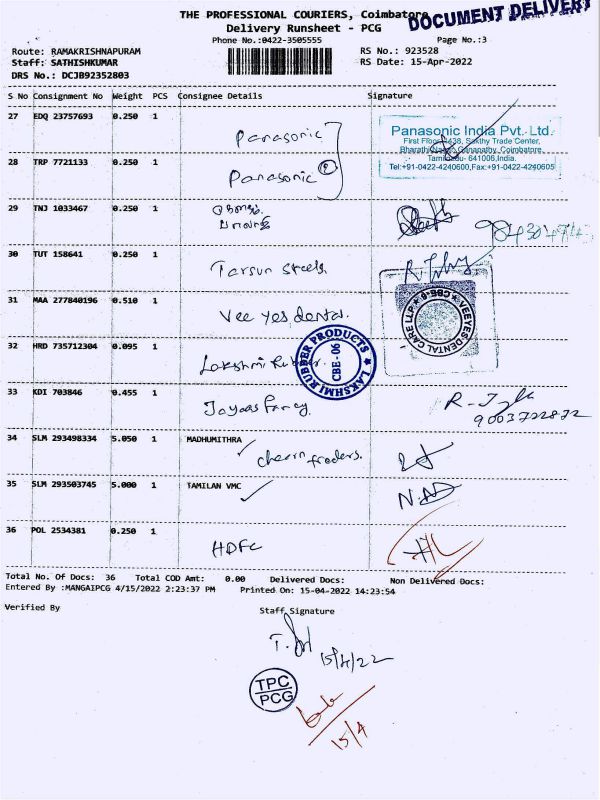 THE PROFESSIONAL COURIERS, Coimbatore
DOCUMENT DELIVERY
Delivery Runsheet - PCG
Phone No.:0422-3505555
Page No.:3
Route: RAMAKRISHNAPURAM
RS No.: 923528
Staff: SATHISHKUMAR
RS Date: 15-Apr-2022
DRS No.: DCJB92352803
S No Consignment No Weight PCS Consignee Details Signature
27 EDQ 23757693 0.250 1 Panasonic
Panasonic India Pvt. Ltd.
First Floor, 438, Sakthy Trade Center,
Bharathi Nagar, Ganapathy, Coimbatore,
Tamilnadu- 641006,India.
Tel:+91-0422-4240600,Fax:+91-0422-4240605
28 TRP 7721133 0.250 1 Panasonic P
29 TNJ 1033467 0.250 1
30 TUT 158641 0.250 1 Tarsun steels
31 MAA 277840196 0.510 1 Vee yes dental.
VEEYES DENTAL CARE LLP CBE-6
32 HRD 735712304 0.095 1 Lakshmi Rubber.
LAKSHMI RUBBER PRODUCTS
CBE-06
33 KDI 703846 0.455 1 Jayaas Fancy.
9003722872
34 SLM 293498334 5.050 1 MADHUMITHRA
traders.
35 SLM 293503745 5.000 1 TAMILAN VMC
36 POL 2534381 0.250 1 HDFC
Total No. Of Docs: 36 Total COD Amt: 0.00 Delivered Docs: Non Delivered Docs:
Entered By :MANGAIPCG 4/15/2022 2:23:37 PM Printed On: 15-04-2022 14:23:54
Verified By Staff Signature
15/4/22
TPC
PCG
15/4